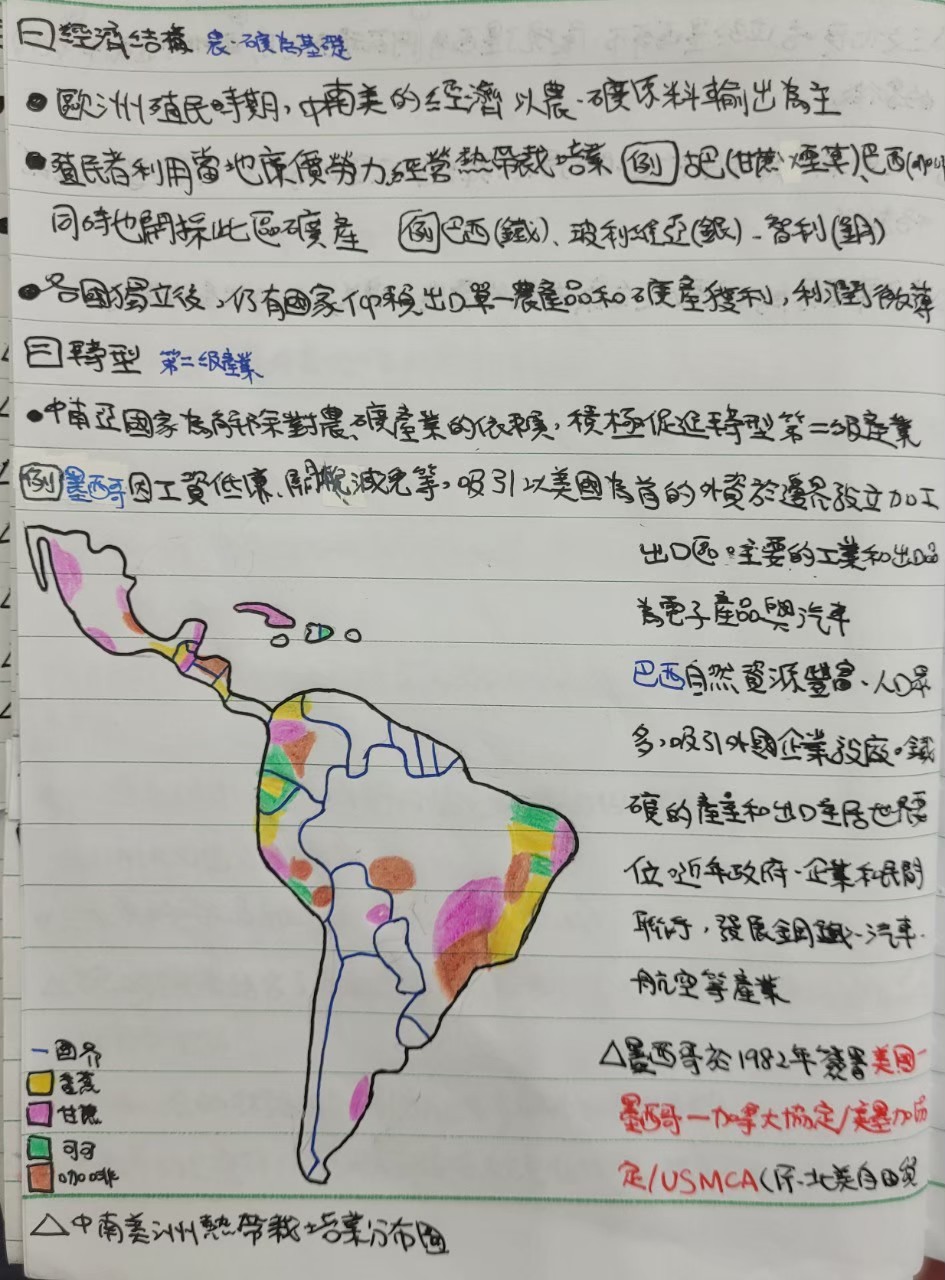 ㊀經濟結構 農、礦為基礎
●歐洲殖民時期，中南美的經濟以農、礦原料輸出為主
●殖民者利用當地廉價勞力，經營熱帶栽培業 例古巴(甘蔗、煙草)、巴西(
同時也開採此區礦產 例巴西(鐵)、玻利維亞(銀)、智利(銅)
●各國獨立後，仍有國家仰賴出口單一農產品和礦產獲利，利潤微薄
轉型 第二級產業
●中南亞國家為解除對農、礦產業的依賴，積極促進轉型第二級產業
例墨西哥因工資低廉、關稅減免等，吸引以美國為首的外資於邊界設立加工
出口區。主要的工業和出口品
為電子產品與汽車
巴西自然資源豐富、人口眾
多，吸引外國企業設廠。鐵
礦的產量和出口量居世界
位。近年政府、企業和民間
聯合，發展鋼鐵、汽車、
航空等產業
△墨西哥於1982年簽署美國-
墨西哥-加拿大協定/美墨加協
定/USMCA(原北美自由貿
—國界
香蕉
甘蔗
可可
咖啡
△中南美洲熱帶栽培業分布圖